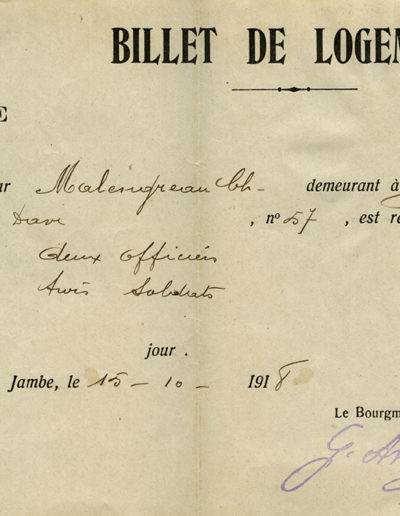 BILLET DE LOGEM
E
ur Malengreau Ch- demeurant à
Dave , nº 57 , est re
deux officiers
trois soldats
jour .
Jambe, le 15 - 10 - 1918
Le Bourgm
G. A